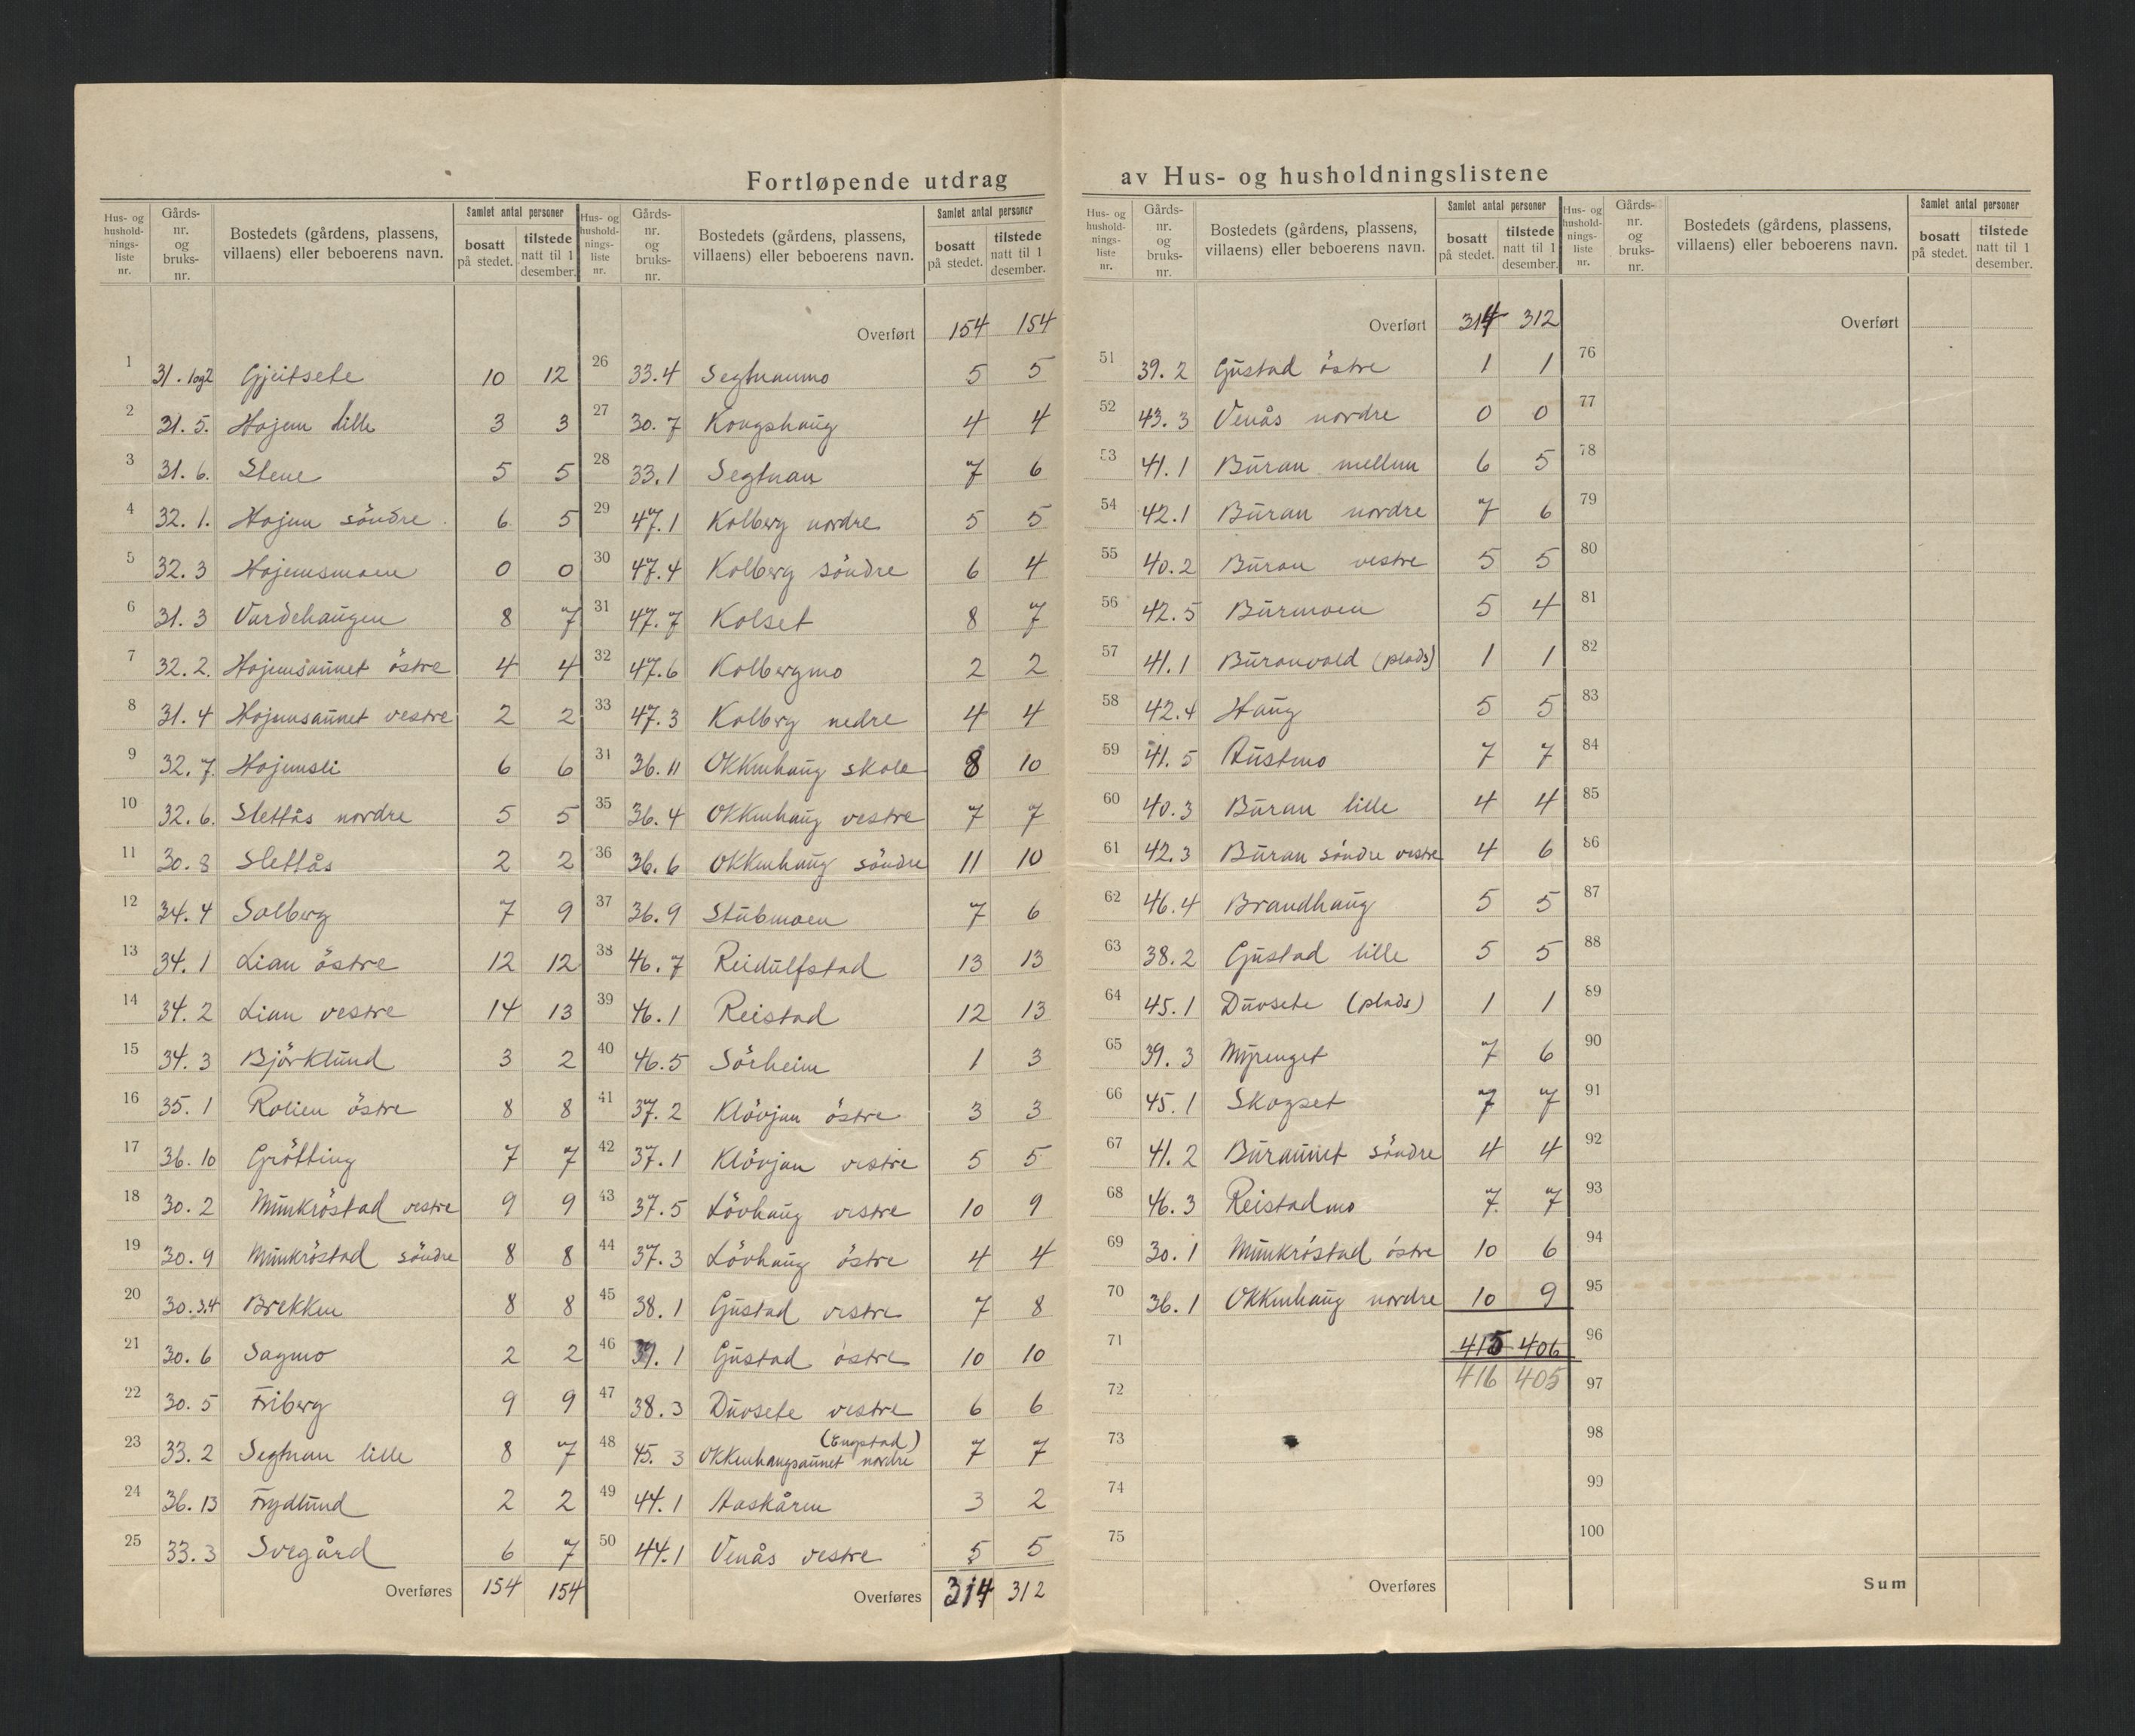 Fortløpende utdrag av Hus- og husholdningslistene
Hus- og husholdnings- liste nr. Gårds- nr. og bruks- nr. Bostedets (gårdens, plassens, villaens) eller beboerens navn. Samlet antal personer bosatt på stedet. tilstede natt til 1 desember.
1 31. 1og2 Gjeitsete 10 12
2 31. 5. Hojem lille 3 3
3 31. 6. Stene 5 5
4 32. 1. Hojem söndre 6 5
5 32. 3 Hojemsmoen 0 0
6 31. 3 Vardehaugen 8 7
7 32. 2. Hojemsaunet östre 4 4
8 31. 4 Hojemsaunet vestre 2 2
9 32. 7. Hojemsli 6 6
10 32. 6. Slettås nordre 5 5
11 30. 8 Slettås 2 2
12 34. 4 Solberg 7 9
13 34. 1 Lian östre 12 12
14 34. 2 Lian vestre 14 13
15 34. 3 Björklund 3 2
16 35. 1 Rolien östre 8 8
17 36. 10 Grötting 7 7
18 30. 2 Munkröstad vestre 9 9
19 30. 9 Munkröstad söndre 8 8
20 30. 3.4 Brekken 8 8
21 30. 6 Sagmo 2 2
22 30. 5 Friberg 9 9
23 33. 2 Segtnan lille 8 7
24 36. 13 Frydlund 2 2
25 33. 3 Svegård 6 7
Overføres 154 154
Hus- og husholdnings- liste nr. Gårds- nr. og bruks- nr. Bostedets (gårdens, plassens, villaens) eller beboerens navn. Samlet antal personer bosatt på stedet. tilstede natt til 1 desember.
Overført 154 154
26 33.4 Segtnanmo 5 5
27 30. 7 Kongshaug 4 4
28 33.1 Segtnan 7 6
29 47.1 Kolberg nordre 5 5
30 47.4 Kolberg söndre 6 4
31 47.7 Kolset 8 7
32 47.6 Kolbergmo 2 2
33 47.3 Kolberg nedre 4 4
34 36. 11 Okkenhaug skole 8 10
35 36. 4 Okkenhaug vestre 7 7
36 36. 6 Okkenhaug söndre 11 10
37 36. 9 Stubmoen 7 6
38 46. 7 Reidulfstad 13 13
39 46. 1 Reistad 12 13
40 46.5 Sörheim 1 3
41 37. 2 Klövjan östre 3 3
42 37.1 Klövjan vestre 5 5
43 37.5 Lövhaug vestre 10 9
44 37.3 Lövhaug östre 4 4
45 38.1 Gustad vestre 7 8
46 39. 1 Gustad östre 10 10
47 38. 3 Duvsete vestre 6 6
48 45. 3 Okkenhaugsaunet nordre (Engstad) 7 7
49 44. 1 Aaskåren 3 2
50 44.1 Venås vestre 5 5
Overføres 314 312
Hus- og husholdnings- liste nr. Gårds- nr. og bruks- nr. Bostedets (gårdens, plassens, villaens) eller beboerens navn. Samlet antal personer bosatt på stedet. tilstede natt til 1 desember.
Overført 314 312
51 39. 2 Gustad östre 1 1
52 43. 3 Venås nordre 0 0
53 41. 1 Buran mellem 6 5
54 42.1 Buran nordre 7 6
55 40.2 Buran vestre 5 5
56 42. 5 Burmoen 5 4
57 41.1 Buranvald (plads) 1 1
58 42.4 Haug 5 5
59 41. 5 Austmo 7 7
60 40.3 Buran lille 4 4
61 42. 3 Buran söndre vestre 4 6
62 46. 4 Brandhaug 5 5
63 38. 2 Gustad lille 5 5
64 45. 1 Duvsete (plads) 1 1
65 39. 3 Myrenget 7 6
66 45. 1 Skogset 7 7
67 41. 2 Buraunet söndre 4 4
68 46. 3 Reistadmo 7 7
69 30. 1 Munkröstad östre 10 6
70 36. 1 Okkenhaug nordre 10 9
71 415 406
72 416 405
73
74
75
Overføres
Hus- og husholdnings- liste nr. Gårds- nr. og bruks- nr. Bostedets (gårdens, plassens, villaens) eller beboerens navn. Samlet antal personer bosatt på stedet. tilstede natt til 1 desember.
Overført
76
77
78
79
80
81
82
83
84
85
86
87
88
89
90
91
92
93
94
95
96
97
98
99
100
Sum